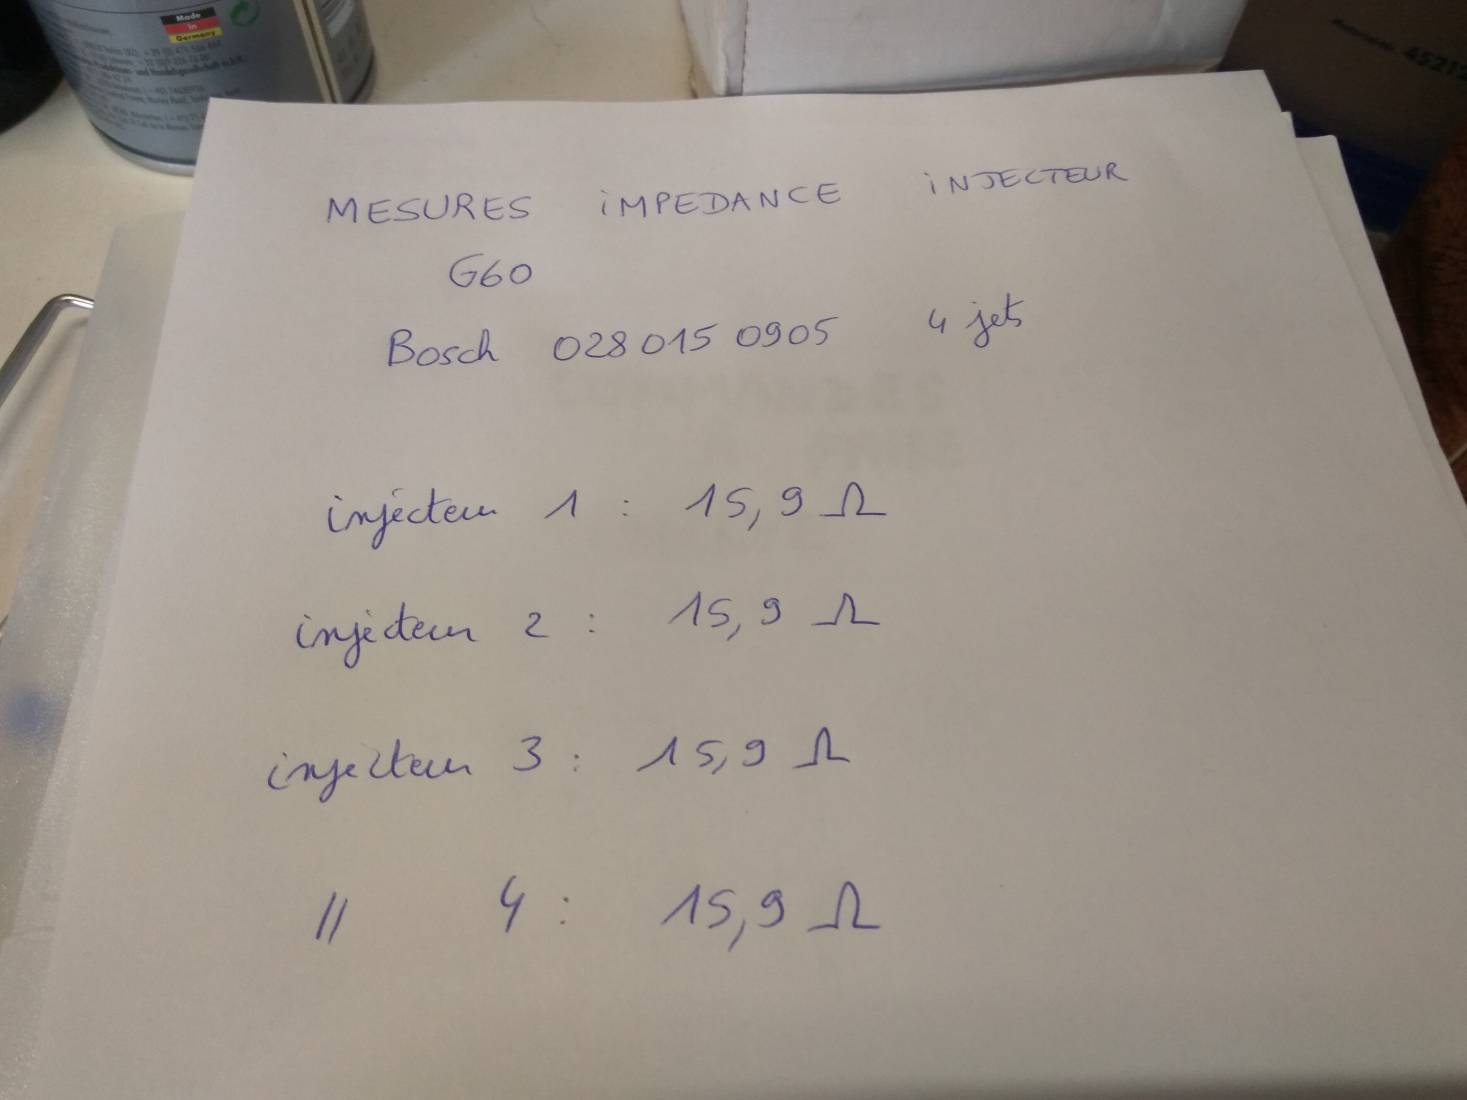 Made
in
Germany
MESURES iMPEDANCE iNJECTEUR
G60
Bosch 028 015 0905 4 jets
injecteur 1 : 15,9 Ω
injecteur 2 : 15,9 Ω
injecteur 3 : 15,9 Ω
" 4 : 15,9 Ω